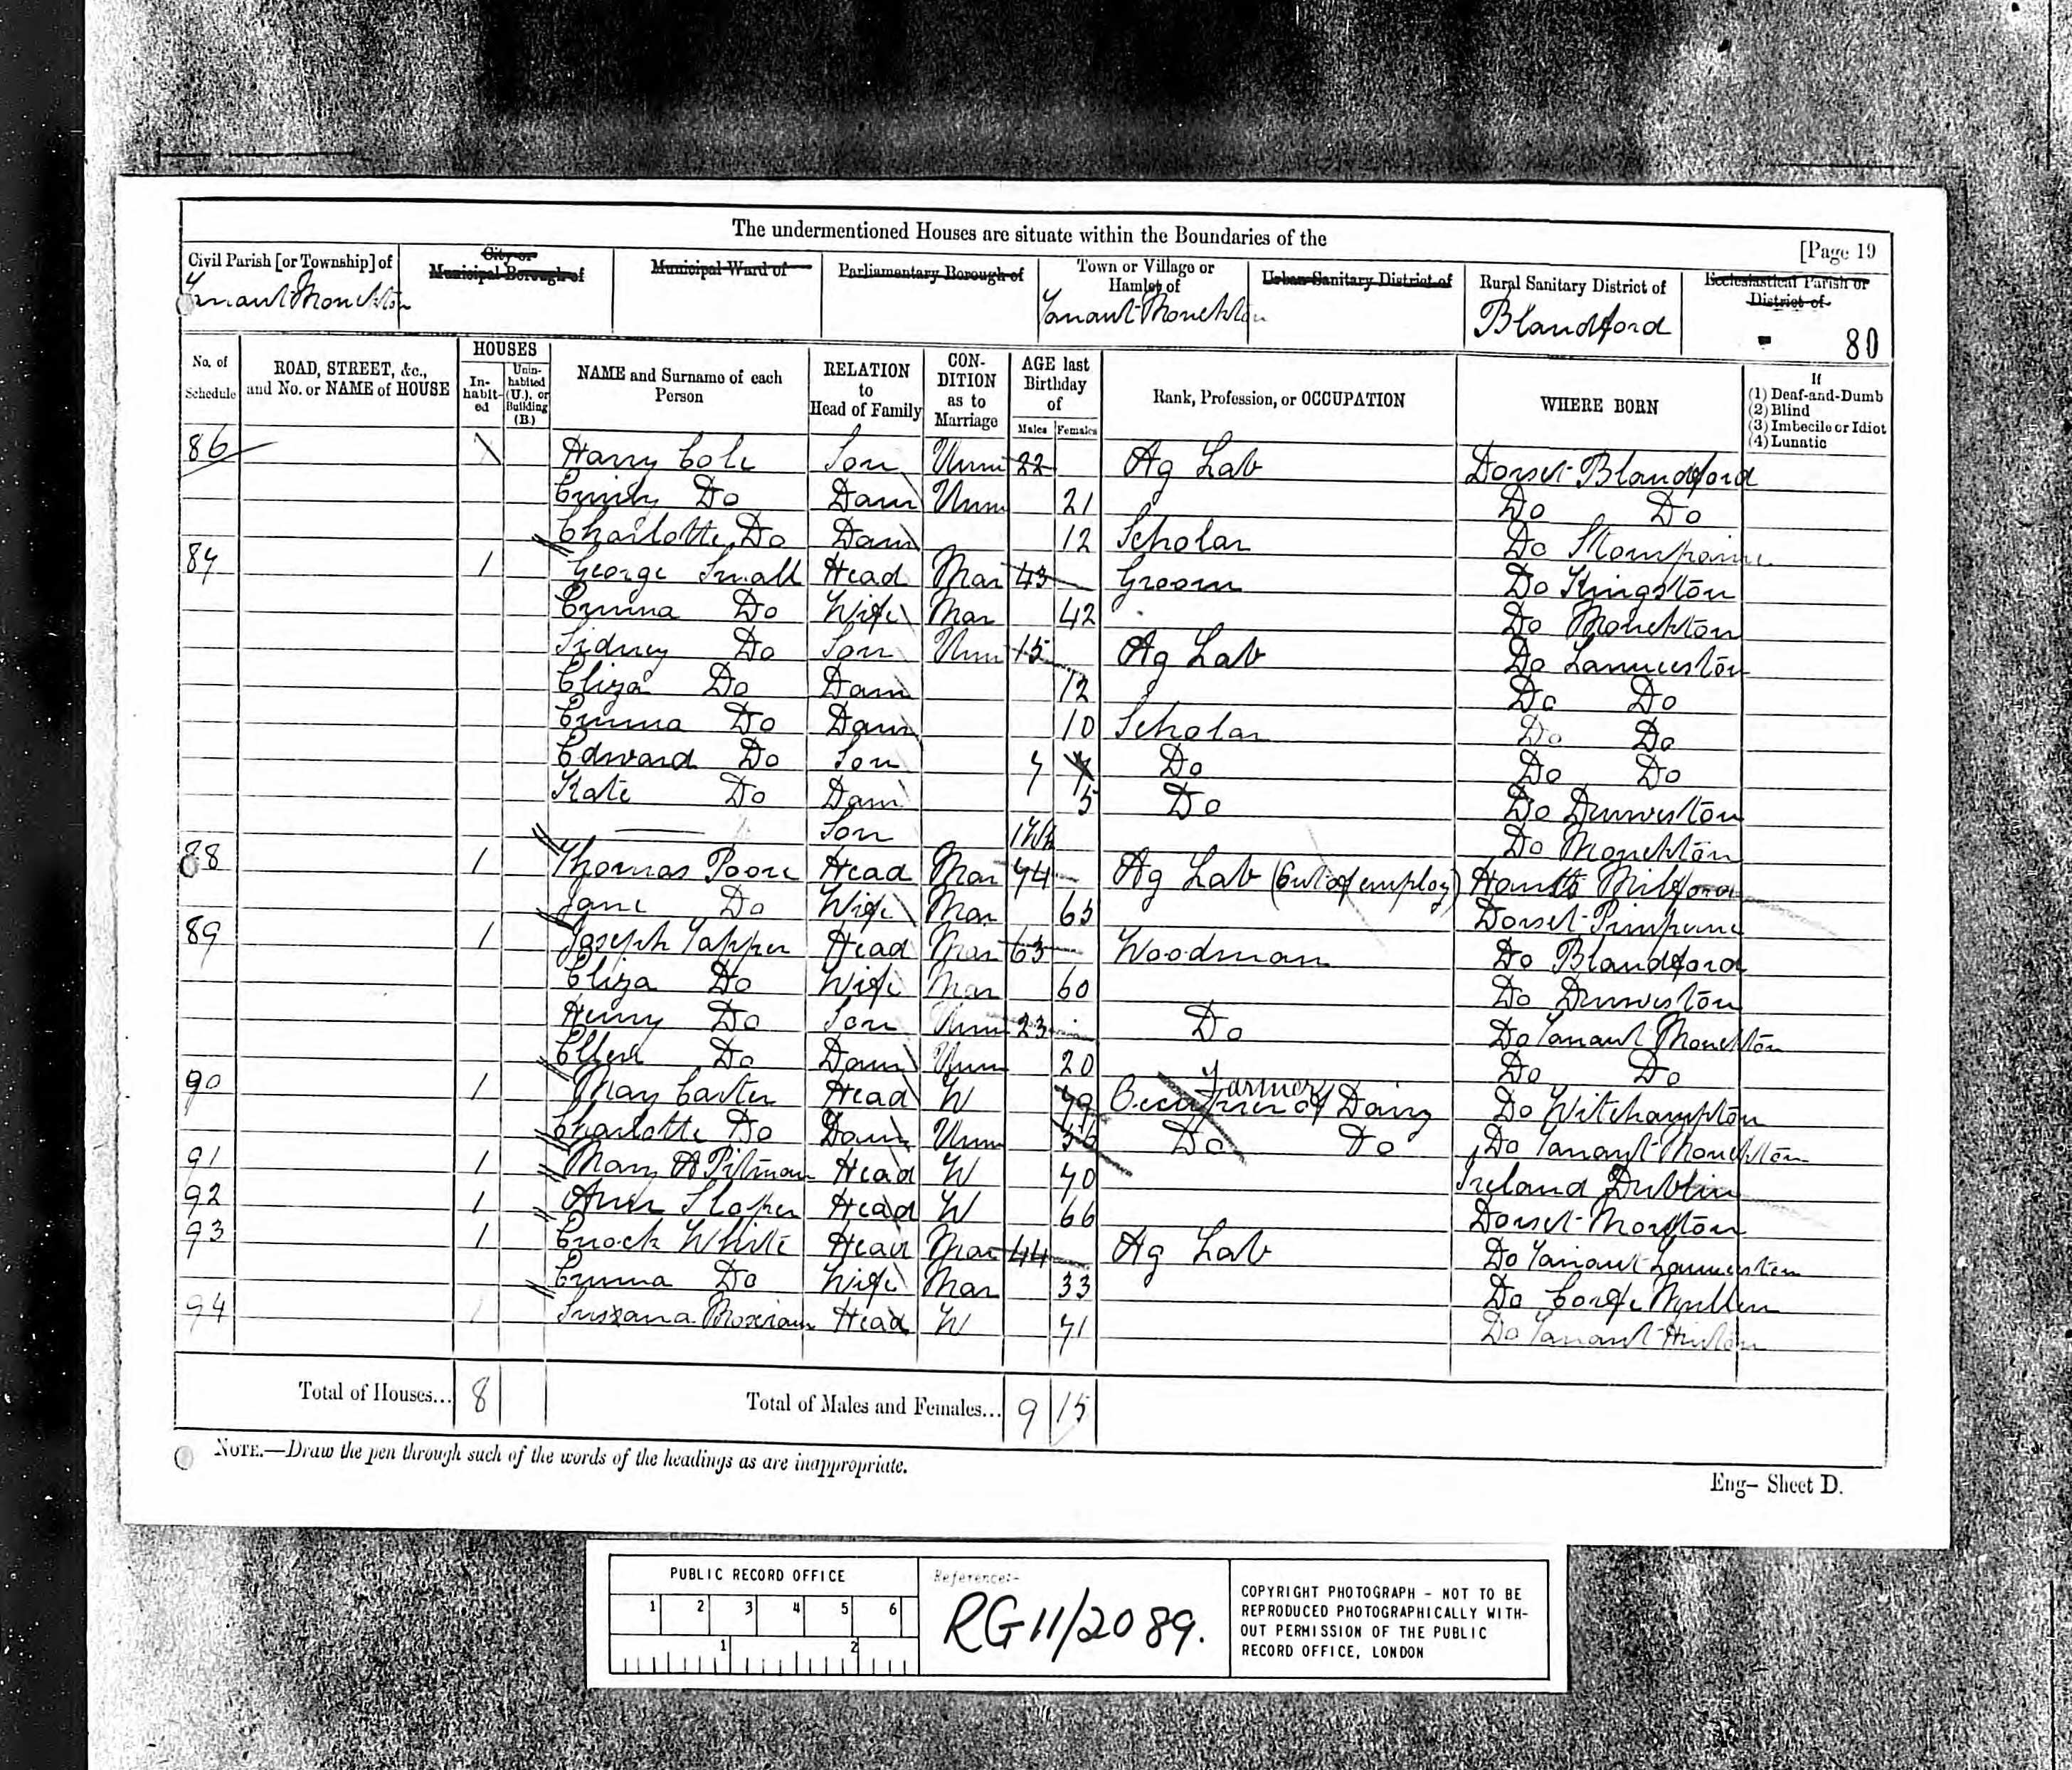 The undermentioned Houses are situate within the Boundaries of the
[Page 19
Civil Parish [or Township] of
Tarrant Monckton
City or Municipal Borough of
Municipal Ward of
Parliamentary Borough of
Town or Village or Hamlet of
Tarrant Monckton
Urban Sanitary District of
Rural Sanitary District of
Blandford
Ecclesiastical Parish or District of
80
No. of Schedule
ROAD, STREET, &c., and No. or NAME of HOUSE
HOUSES
In-habit-ed
Unin-habited (U.), or Building (B.)
NAME and Surname of each Person
RELATION to Head of Family
CON-DITION as to Marriage
AGE last Birthday of
Males
Females
Rank, Profession, or OCCUPATION
WHERE BORN
If
(1) Deaf-and-Dumb
(2) Blind
(3) Imbecile or Idiot
(4) Lunatic
86 Harry Cole Son Unm 22 Ag Lab Dorset Blandford
Emily Do Daur Unm 21 Do Do
Charlotte Do Daur 12 Scholar Do Stourpaine
87 1 George Small Head Mar 43 Groom Do Kingston
Emma Do Wife Mar 42 Do Monckton
Sidney Do Son Unm 15 Ag Lab Do Launceston
Eliza Do Daur 12 Do Do
Emma Do Daur 10 Scholar Do Do
Edward Do Son 7 7 Do Do Do
Kate Do Daur 5 Do Do
Son Do Monckton
88 1 Thomas Poore Head Mar 74 Ag Lab (Out of employ) Hants Milford
Jane Do Wife Mar 65 Dorset Pimperne
89 1 Joseph Tapper Head Mar 63 Woodman Do Blandford
Eliza Do Wife Mar 60 Do
Henry Do Son Unm 23 Do Do Tarrant Monckton
Ellen Do Daur Unm 20 Do Do
90 1 Mary Carter Head W 79 Farmer of Dairy Do Witchampton
Charlotte Do Daur Unm 36 Do Do Do Tarrant Monckton
91 1 Mary A Pitman Head W 70 Ireland Dublin
92 1 Ann Slaper Head W 66 Dorset
93 1 Enock White Head Mar 44 Ag Lab Do Tarrant Launceston
Emma Do Wife Mar 33 Do Corfe Mullen
94 1 Head W 71 Do Tarrant Hinton
Total of Houses... 8
Total of Males and Females... 9 15
NOTE.—Draw the pen through such of the words of the headings as are inappropriate.
Eng— Sheet D.
PUBLIC RECORD OFFICE
1 2 3 4 5 6
1 2
Reference:-
RG 11/2089.
COPYRIGHT PHOTOGRAPH - NOT TO BE
REPRODUCED PHOTOGRAPHICALLY WITH-
OUT PERMISSION OF THE PUBLIC
RECORD OFFICE, LONDON